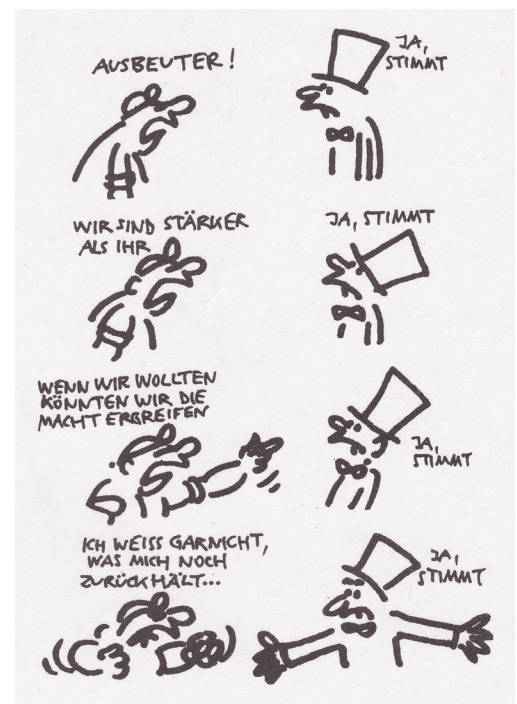 AUSBEUTER!
JA,
STIMMT
WIR SIND STÄRKER
ALS IHR
JA, STIMMT
WENN WIR WOLLTEN
KÖNNTEN WIR DIE
MACHT ERGREIFEN
JA,
STIMMT
ICH WEISS GARNICHT,
WAS MICH NOCH
ZURÜCKHÄLT...
JA,
STIMMT